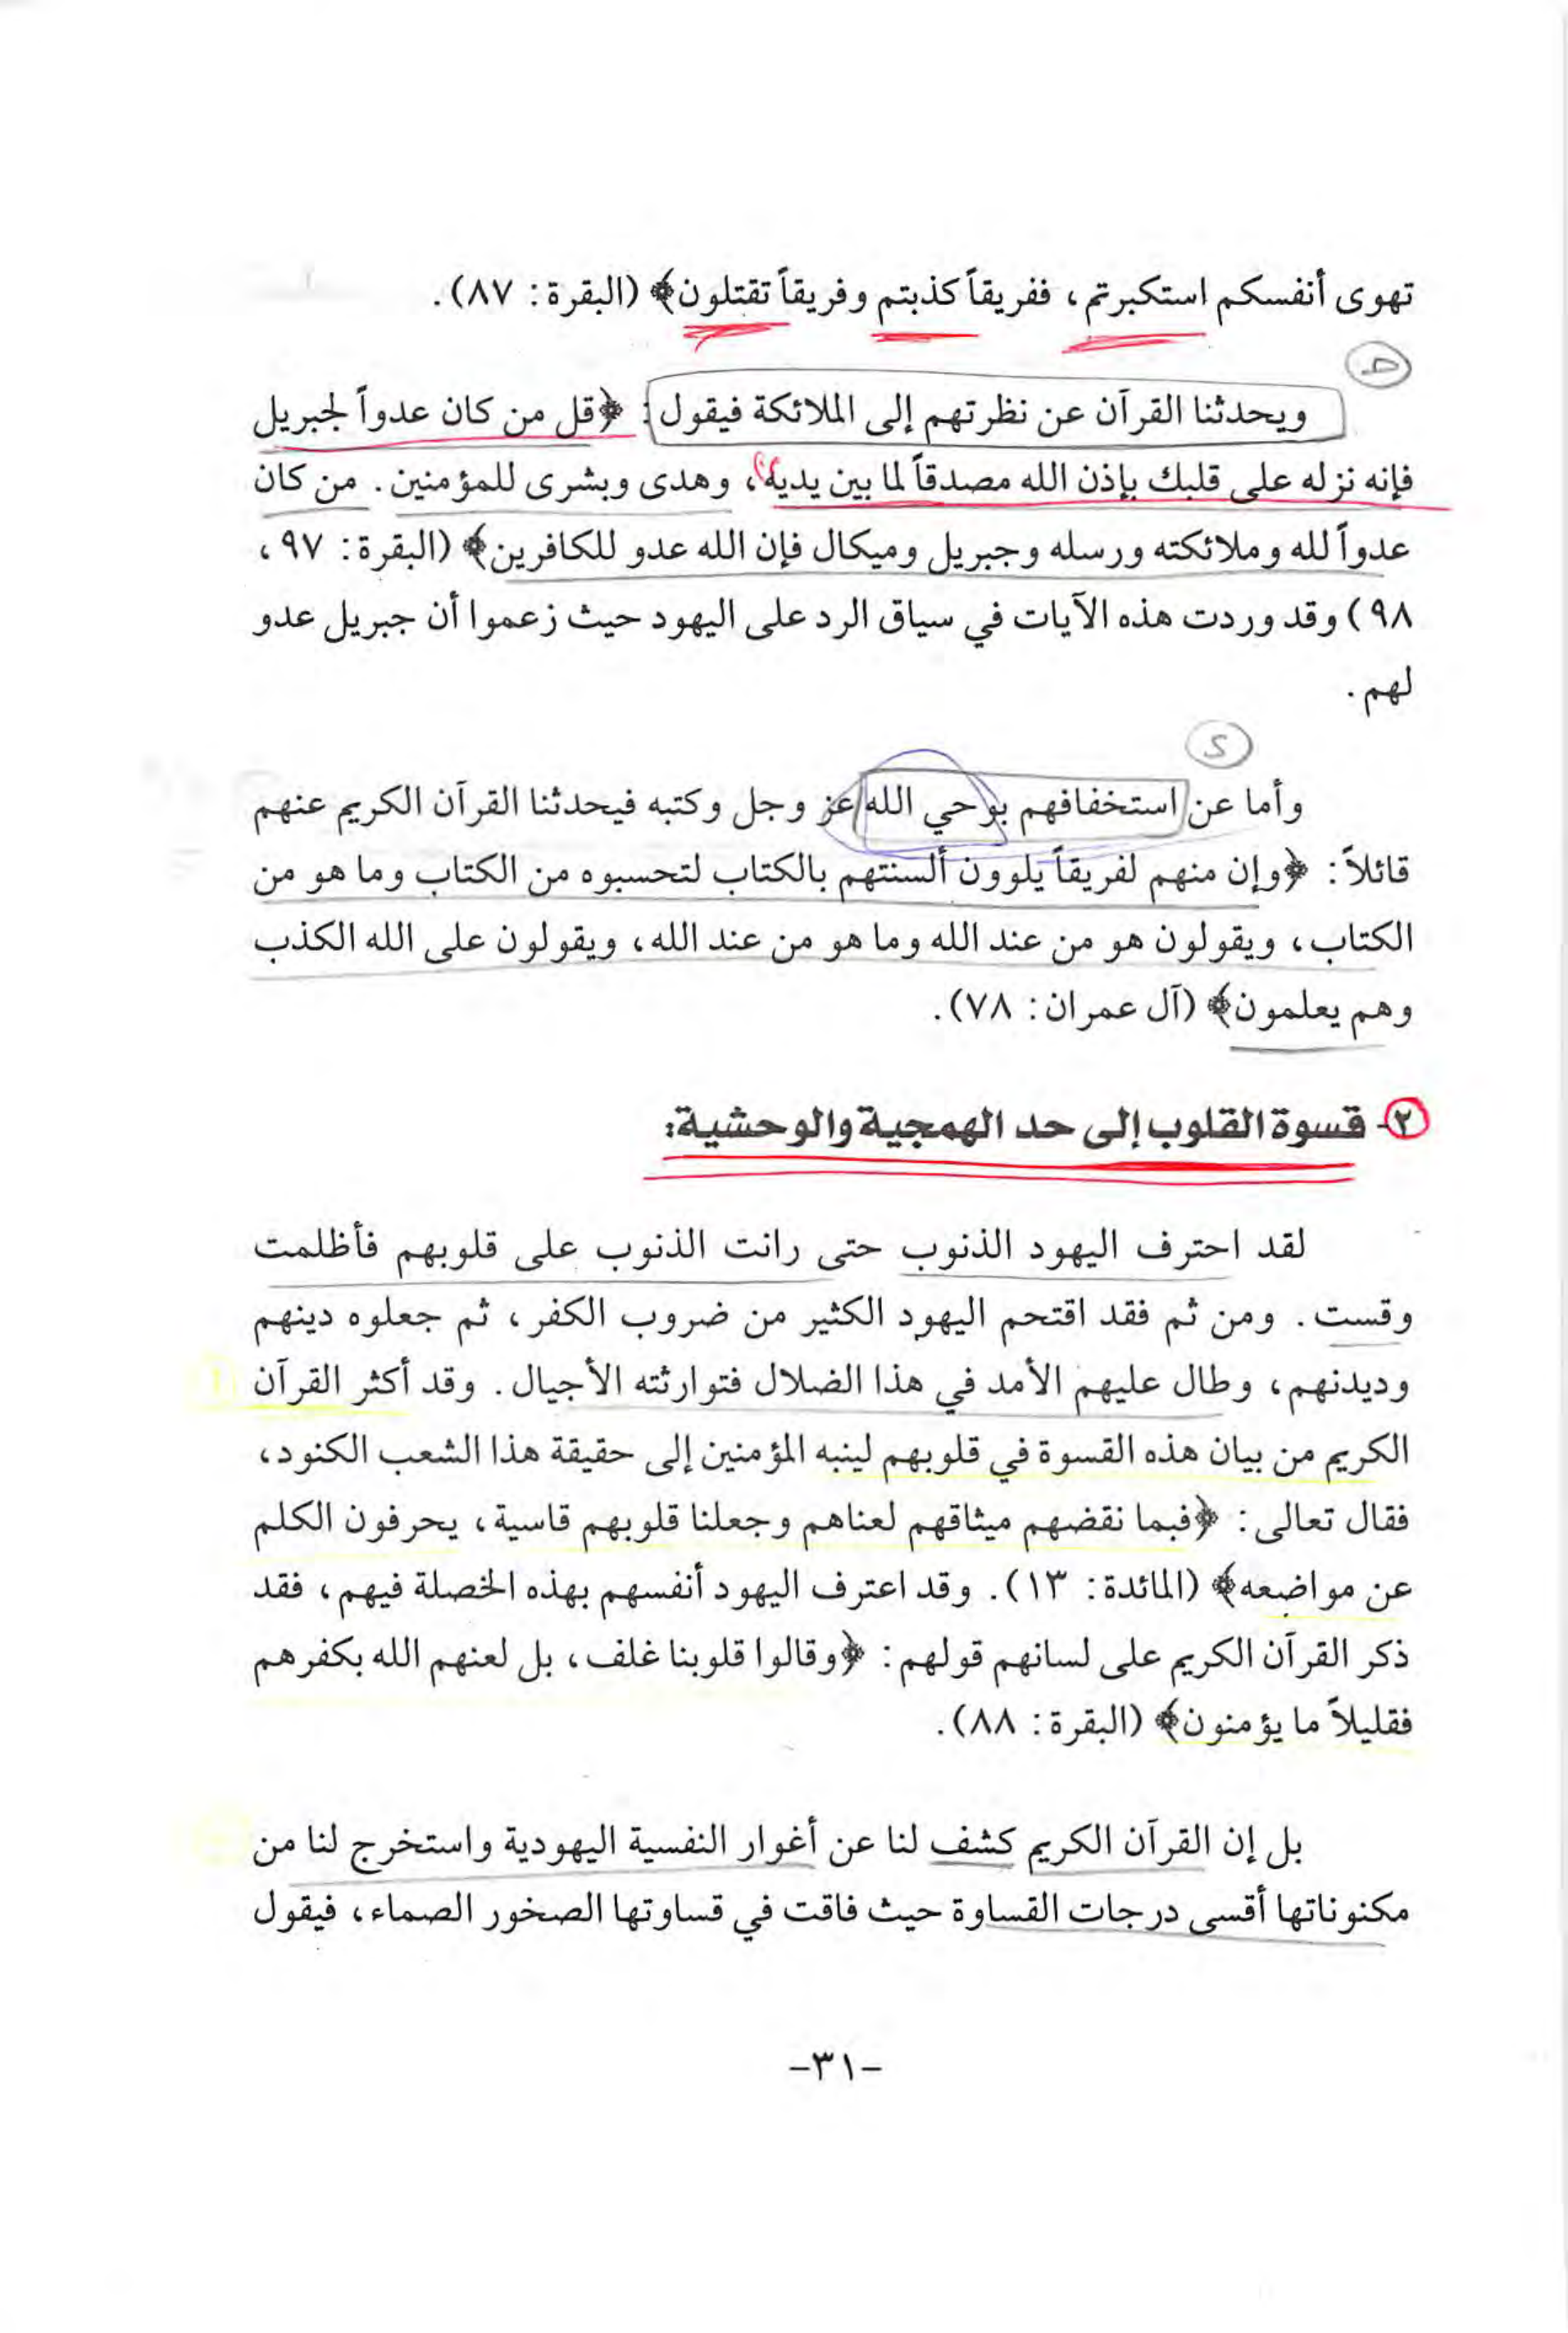 تهوى أنفسكم استكبرتم، ففريقاً كذبتم وفريقاً تقتلون﴾ (البقرة: ٨٧).
ويحدثنا القرآن عن نظرتهم إلى الملائكة فيقول: ﴿قل من كان عدواً لجبريل
فإنه نزله على قلبك بإذن الله مصدقاً لما بين يديه، وهدى وبشرى للمؤمنين. من كان
عدواً لله وملائكته ورسله وجبريل وميكال فإن الله عدو للكافرين﴾ (البقرة: ٩٧،
٩٨) وقد وردت هذه الآيات في سياق الرد على اليهود حيث زعموا أن جبريل عدو
لهم.
وأما عن استخفافهم بوحي الله عز وجل وكتبه فيحدثنا القرآن الكريم عنهم
قائلاً: ﴿وإن منهم لفريقاً يلوون ألسنتهم بالكتاب لتحسبوه من الكتاب وما هو من
الكتاب، ويقولون هو من عند الله وما هو من عند الله، ويقولون على الله الكذب
وهم يعلمون﴾ (آل عمران: ٧٨).
٢- قسوة القلوب إلى حد الهمجية والوحشية:
لقد احترف اليهود الذنوب حتى رانت الذنوب على قلوبهم فأظلمت
وقست. ومن ثم فقد اقتحم اليهود الكثير من ضروب الكفر، ثم جعلوه دينهم
وديدنهم، وطال عليهم الأمد في هذا الضلال فتوارثته الأجيال. وقد أكثر القرآن
الكريم من بيان هذه القسوة في قلوبهم لينبه المؤمنين إلى حقيقة هذا الشعب الكنود،
فقال تعالى: ﴿فبما نقضهم ميثاقهم لعناهم وجعلنا قلوبهم قاسية، يحرفون الكلم
عن مواضعه﴾ (المائدة: ١٣). وقد اعترف اليهود أنفسهم بهذه الخصلة فيهم، فقد
ذكر القرآن الكريم على لسانهم قولهم: ﴿وقالوا قلوبنا غلف، بل لعنهم الله بكفرهم
فقليلاً ما يؤمنون﴾ (البقرة: ٨٨).
بل إن القرآن الكريم كشف لنا عن أغوار النفسية اليهودية واستخرج لنا من
مكنوناتها أقسى درجات القساوة حيث فاقت في قساوتها الصخور الصماء، فيقول
-٣١-